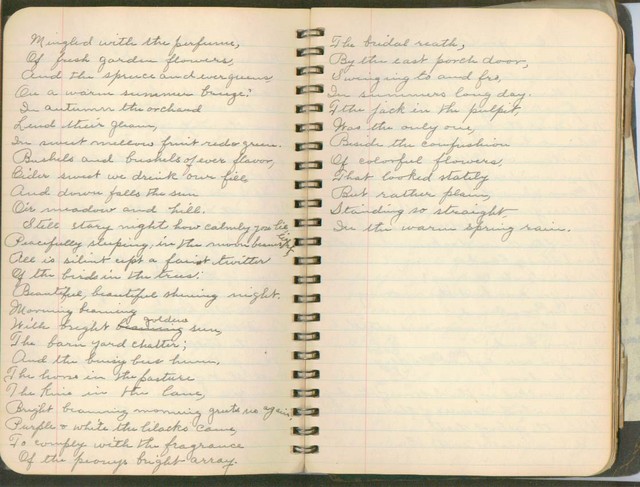 Mingled with the perfume,
Of fresh garden flowers,
And the spruce and evergreens,
On a warm summer breeze;
In autumn the orchard
Lend their gleam,
In sweet mellow fruit red & green.
Bushels and bushels of ever flavor,
Cider sweet we drink our fill
And down falls the sun
O'ir meadow and hill.
Still stary night how calmly you lie,
Peacefully sleeping, in the moon beams
All is silint cept a faint twitter
Of the birds in the trees:
Beautiful, beautiful shining night.
Morning beaming
With bright golden sun,
The barn yard chatter;
And the busy bees hum.
The horse in the pasture
The kine in the lane,
Bright beaming morning greets us again,
Purple & white the lilacks came,
To comply with the fragrance
Of the peonys bright array.
The bridal reath,
By the east porch door,
Swinging to and fro,
In summers long day.
& the jack in the pulpit,
Was the only one,
Beside the confushion
Of colorful flowers,
That looked stately
But rather plain,
Standing so straight,
In the warm spring rain.